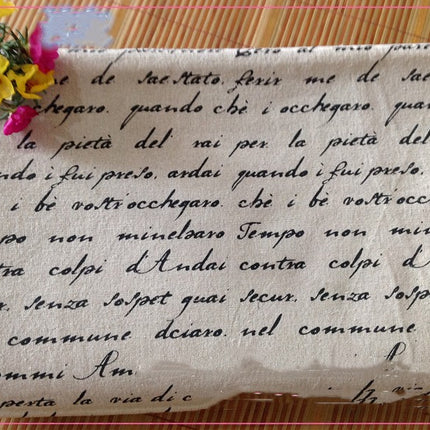 al mio pare
me de saestato. ferir me de sae
chegaro. quando chè i occhegaro. quan
la pietà del rai per la pietà del
ndo i fui preso. ardai quando i fui preso.
i bè vostriocchegaro. chè i bè vostriocc
po non minelsaro Tempo non min
tra colpi d'Andai contra colpi d'A
r. senza sospet guai secur. senza sosp
commune dciaro. nel commune
ommi Am
perta la via di c